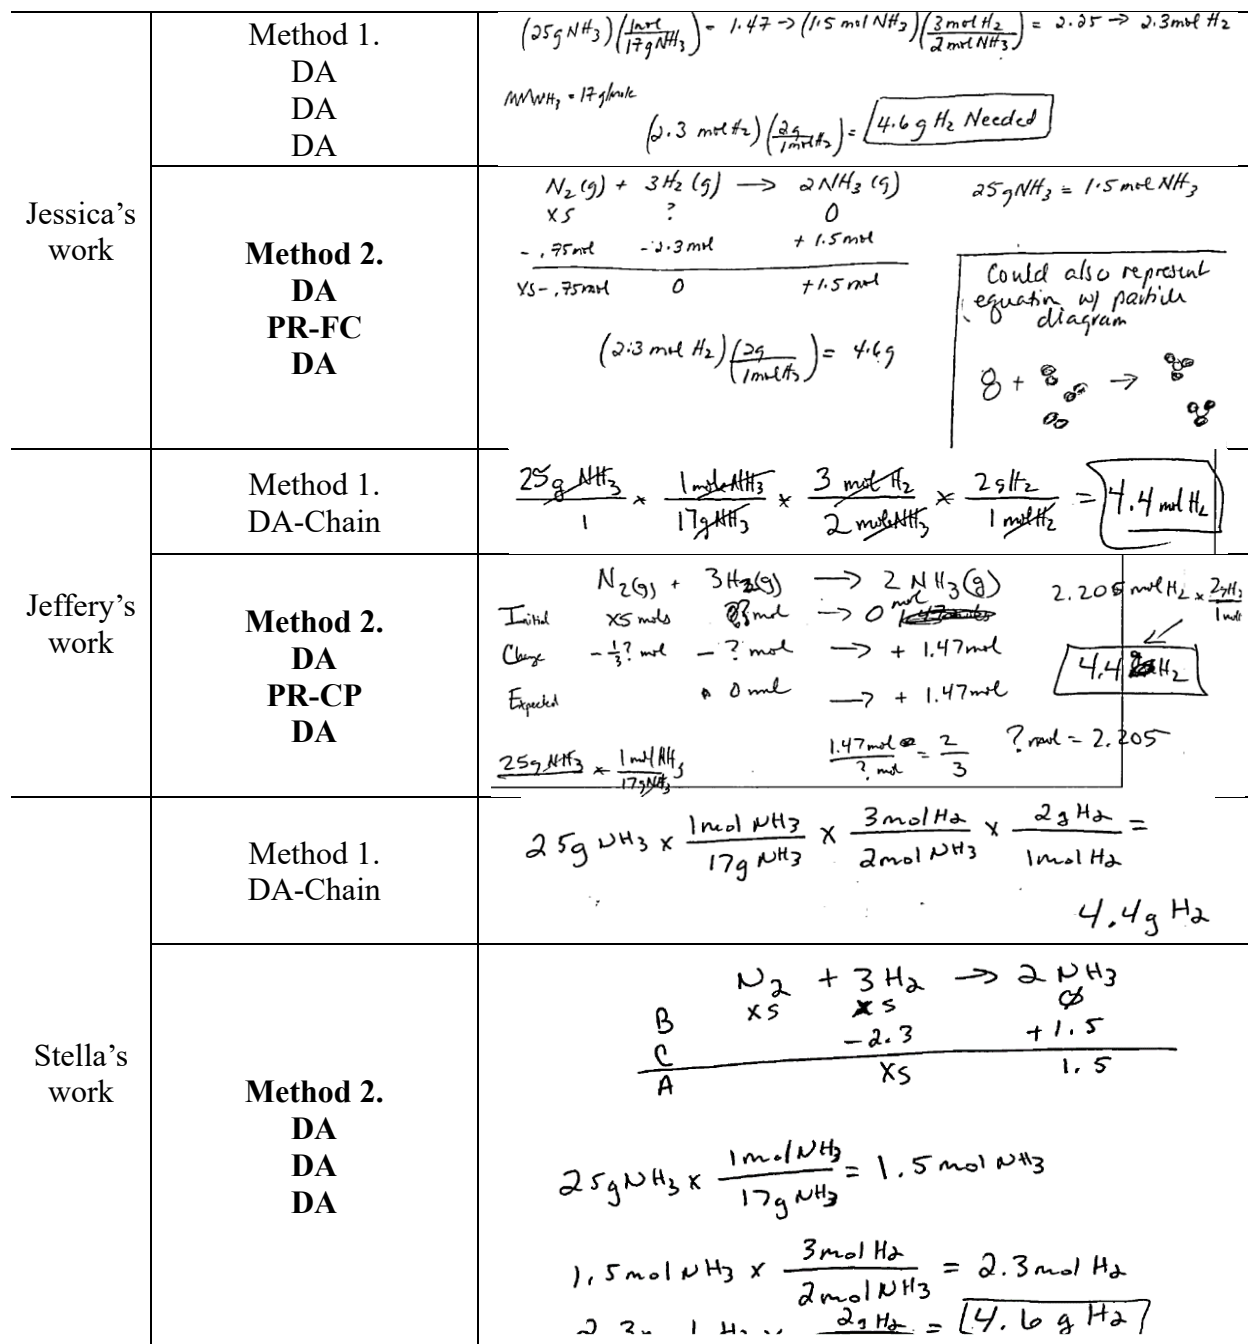 Jessica's work
Method 1.
DA
DA
DA
(25g NH₃)(1mol/17g NH₃) = 1.47 → (1.5 mol NH₃)(3 mol H₂/2 mol NH₃) = 2.25 → 2.3 mol H₂
MMNH₃ = 17 g/mole
(2.3 mol H₂)(2g/1mol H₂) = 4.6 g H₂ Needed
Method 2.
DA
PR-FC
DA
N₂(g) + 3H₂(g) → 2NH₃(g)
25g NH₃ = 1.5 mol NH₃
xs ? 0
-.75mol -2.3mol +1.5mol
xs-.75mol 0 +1.5mol
(2.3 mol H₂)(2g/1mol H₂) = 4.6g
Could also represent
equation w/ particle
diagram
+ →
Jeffery's work
Method 1.
DA-Chain
25g NH₃/1 × 1 mole NH₃/17g NH₃ × 3 mol H₂/2 mole NH₃ × 2g H₂/1 mol H₂ = 4.4 mol H₂
Method 2.
DA
PR-CP
DA
N₂(g) + 3H₂(g) → 2 NH₃(g)
2.205 mol H₂ × 2g H₂/1 mol
Initial xs mols ? mol → 0 mol
Change -⅓? mol - ? mol → + 1.47mol
4.4 g H₂
Expected 0 mol → + 1.47mol
25g NH₃ × 1 mol NH₃/17g NH₃
1.47mol/? mol = 2/3
? mol = 2.205
Stella's work
Method 1.
DA-Chain
25g NH₃ × 1mol NH₃/17g NH₃ × 3mol H₂/2mol NH₃ × 2g H₂/1mol H₂ =
4.4g H₂
Method 2.
DA
DA
DA
N₂ + 3H₂ → 2 NH₃
B xs xs 0
C -2.3 +1.5
A xs 1.5
25g NH₃ × 1mol NH₃/17g NH₃ = 1.5 mol NH₃
1.5mol NH₃ × 3mol H₂/2mol NH₃ = 2.3mol H₂
2g H₂ = 4.6 g H₂